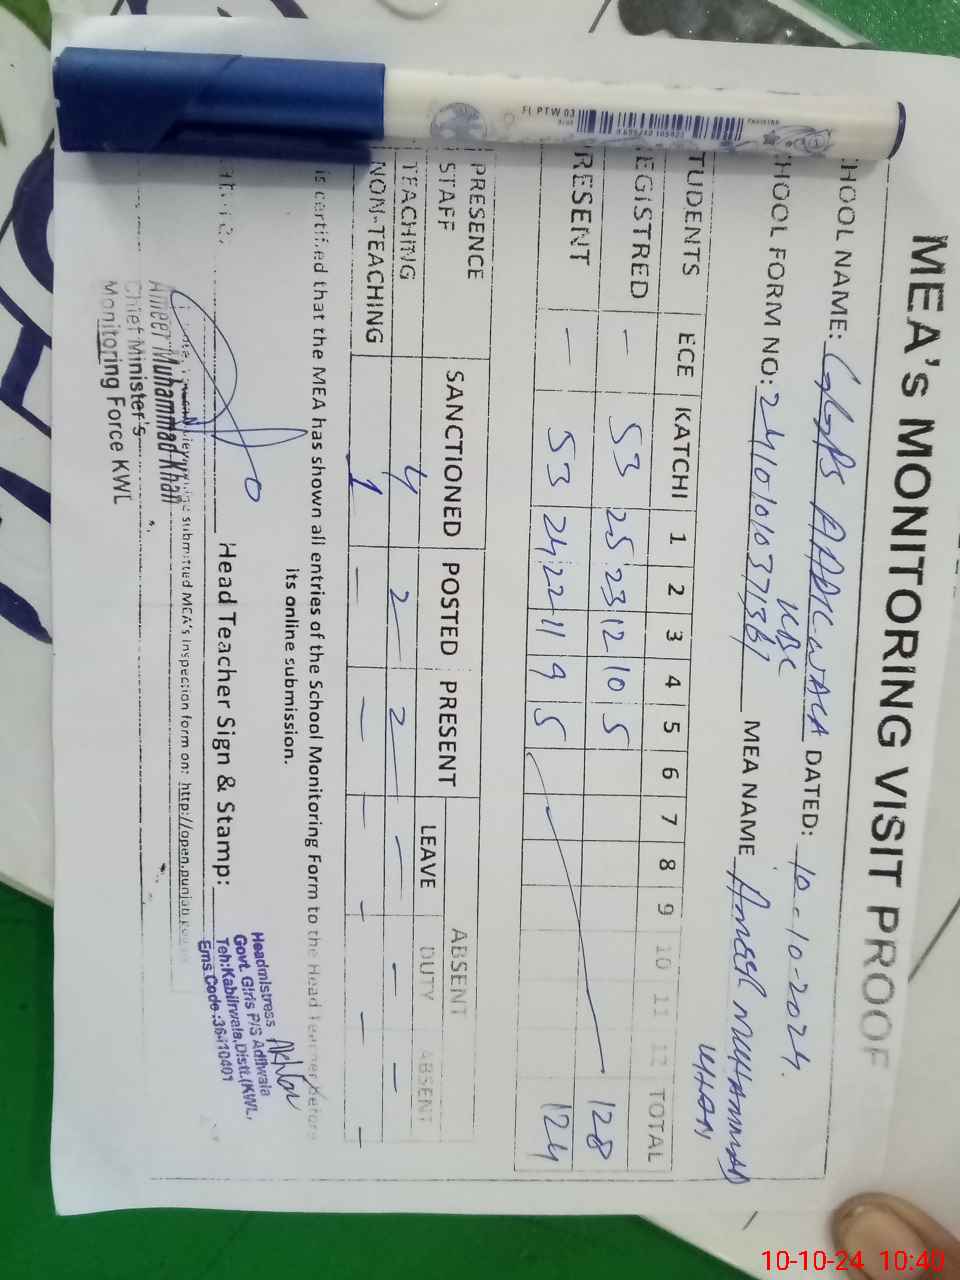 MEA's MONITORING VISIT PROOF
HOOL NAME: DATED: 10-10-2024.
KBC
HOOL FORM NO: MEA NAME AMEER MUHAMMAD
KHAN
TUDENTS ECE KATCHI 1 2 3 4 5 6 7 8 9 10 11 12 TOTAL
EGISTRED — 53 25 23 12 10 5 128
RESENT — 53 24 22 11 9 5 124
PRESENCE STAFF SANCTIONED POSTED PRESENT ABSENT
LEAVE DUTY ABSENT
TEACHING 4 2 2 — — —
NON-TEACHING 1 — — — — — —
is certified that the MEA has shown all entries of the School Monitoring Form to the Head Teacher before
its online submission.
Head Teacher Sign & Stamp:
Headmistress
Govt. Girls P/S Adilwala
Teh:Kabilrwala,Distt.(KWL,
Ems Code:36410401
submitted MEA's inspection form on: http://open.punjab
Ameer Muhammad Khan
Chief Minister's
Monitoring Force KWL
FL PTW 03
10-10-24 10:40